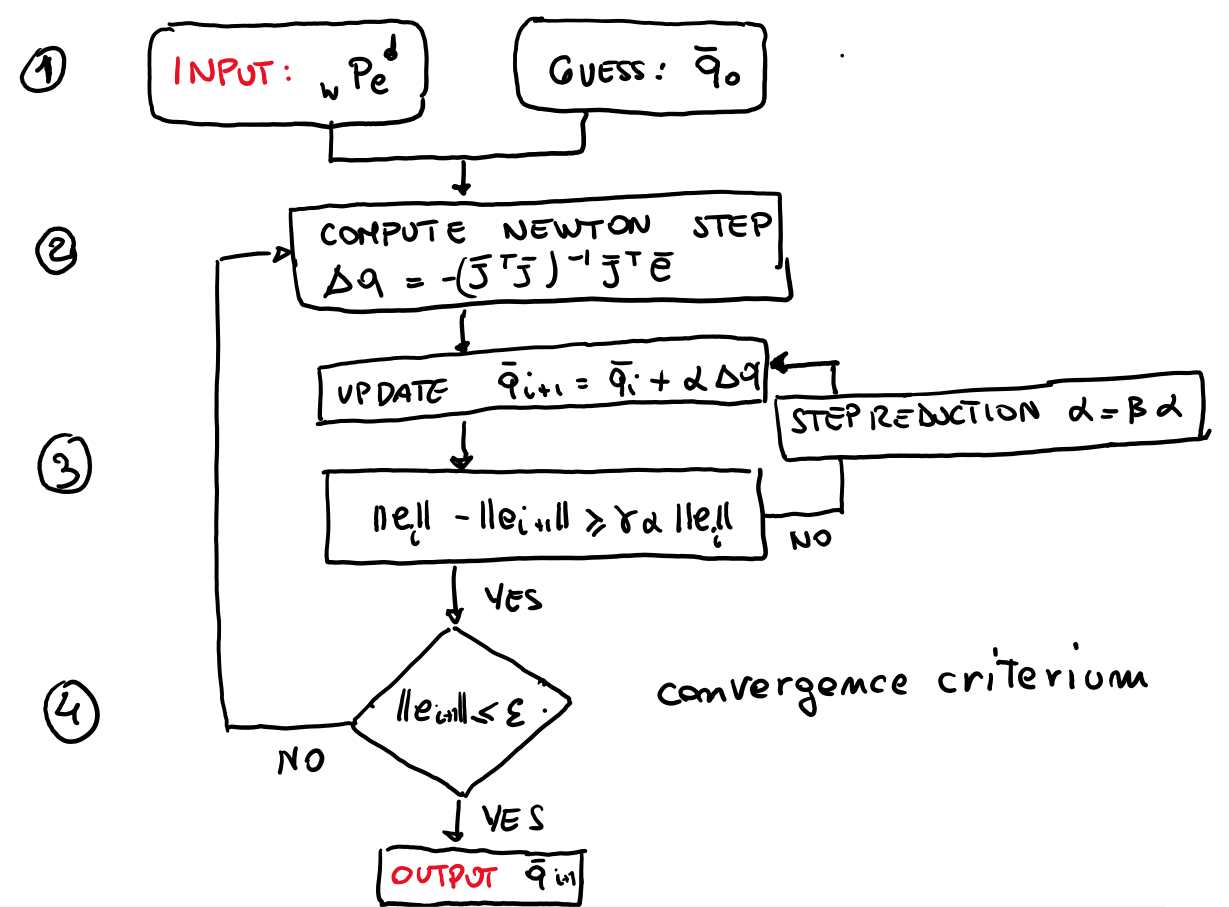 ① INPUT: wPe^d GUESS: q̄₀
② COMPUTE NEWTON STEP
Δq = -(J̄ᵀJ̄)⁻¹ J̄ᵀ ē
UPDATE q̄ᵢ₊₁ = q̄ᵢ + α Δq
STEP REDUCTION α = β α
③
||eᵢ|| - ||eᵢ₊₁|| ⩾ γ α ||eᵢ||
NO
YES
④ ||eᵢ₊₁|| ⩽ ε convergence criterium
NO
YES
OUTPUT q̄ᵢ₊₁